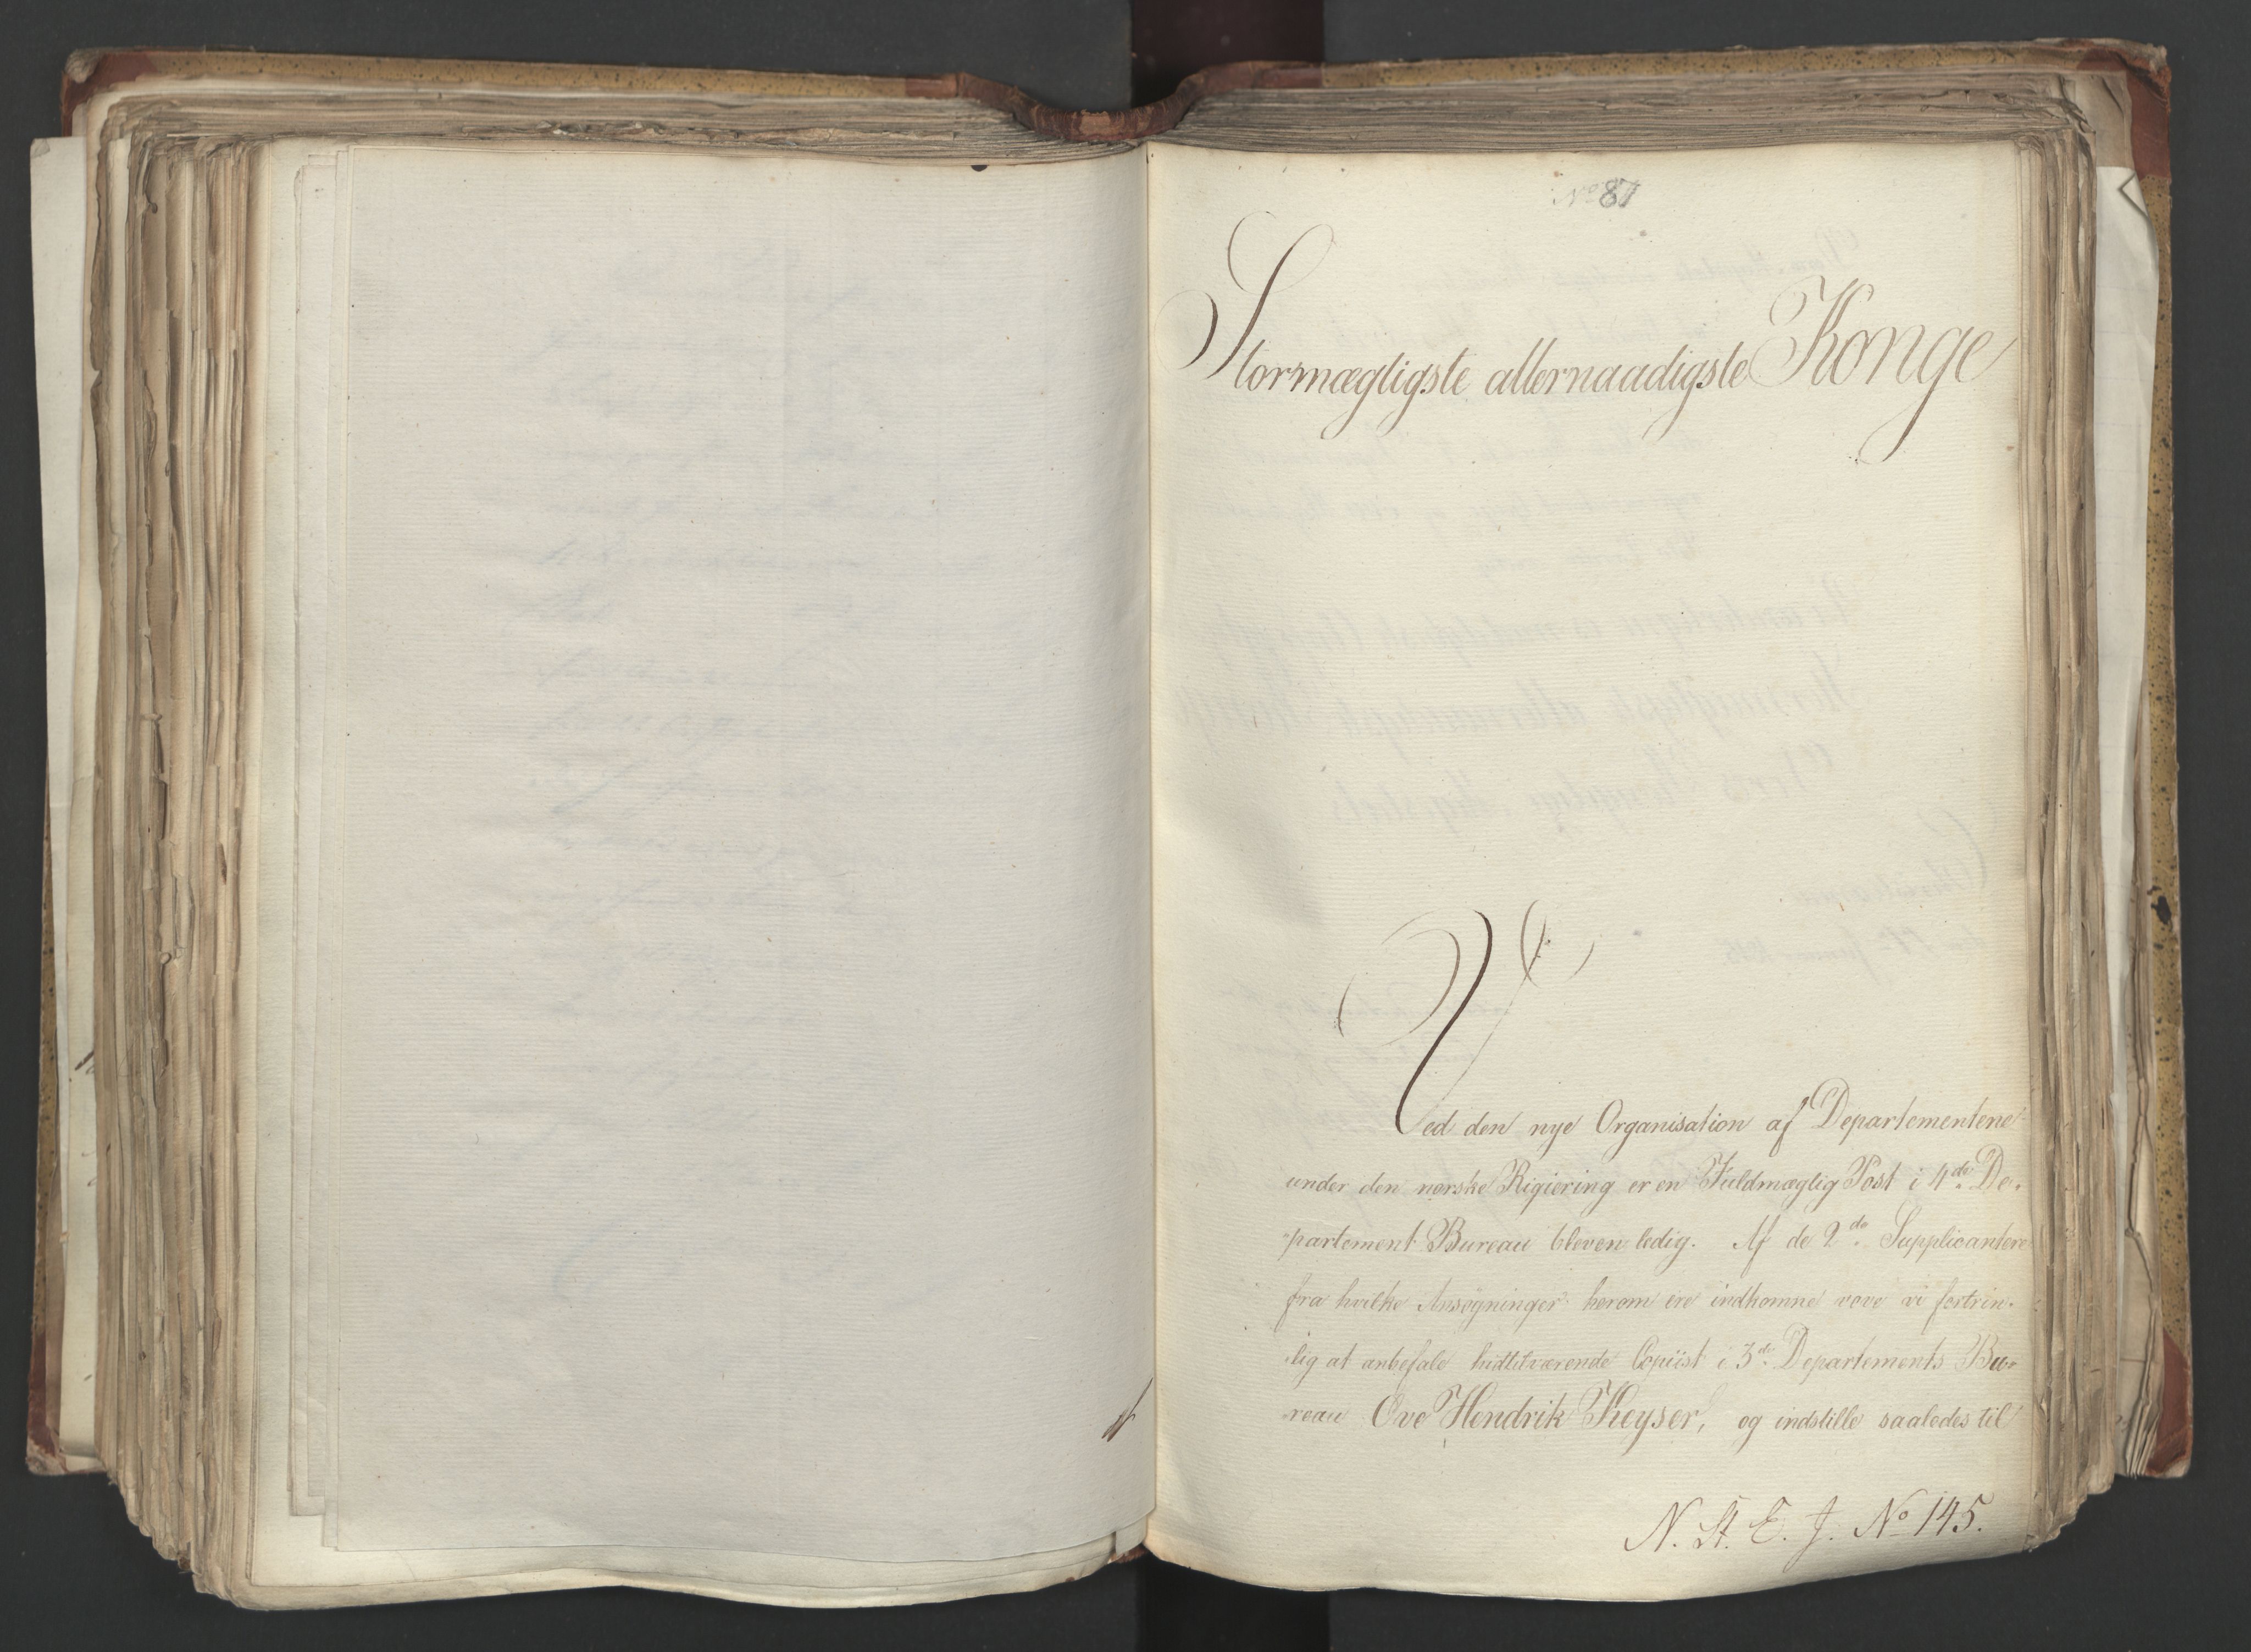 No 87
Stormægtigste allernaadigste Konge
Ved den nye Organisation af Departementene
under den norske Rigiering er en Fuldmægtig Post i 4de De-
partement Bureau bleven ledig. Af de 2de Supplicantere
fra hvilke Ansøgninger herom ere indkomne vove vi fortrin-
lig at anbefale hidtilværende Copiist i 3de Departements Bu-
reau Ove Hendrik Keyser, og indstille saaledes til
N. St. E. J. No 145.